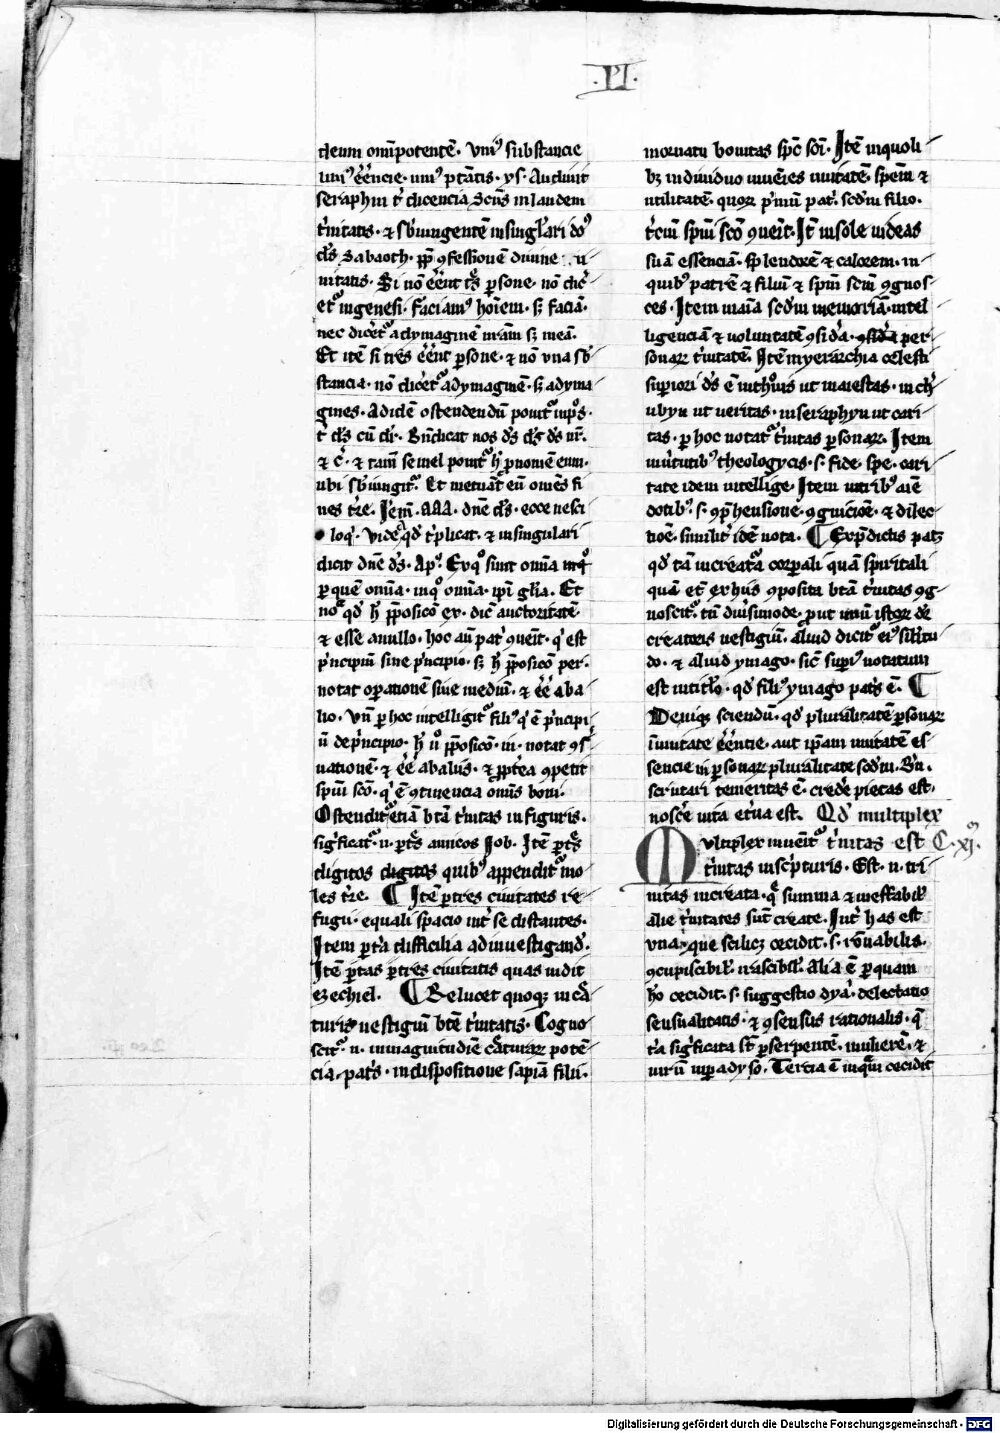 .VI.
deum om̄ipotentē. Vni⁹ substancie
uni⁹ ēēncie. uni⁹ ptātis. ys. Audiuit
seraphin t͛ dicencia Scūs in laudem
t͛nitatis. ⁊ sb̄iungentē in singl̓ari do⁹
d̄s Sabaoth. pp̄ ꝯfessionē diuine
nitatis. Si nō ēēnt t͛s ꝑsone. nō dic̄
et᷑ in genesi. faciam⁹ hoīem. sꝫ faciā.
nec dicēt᷑ ad ymaginē nr̄am sꝫ meā.
Et itē si tres ēēnt ꝑsone. ⁊ nō vna sb̄
stancia. nō dicēt᷑ ad ymaginē. sꝫ ad yma
gines. Ad idē ostendendū ponit᷑ in ps̄.
t͛ d̄s cū dr̄. Bn̄dicat nos d̄s d̄s d̄s nr̄.
⁊ c̄. ⁊ tam̄ semel ponit᷑ h̄ ꝓnomē eum.
ubi sb̄iungit᷑. Et metuāt eū om̄es fi
nes tr̄e. Jem̄. AAA. dn̄e d̄s. ecce nesci
o loq͛. Vide qd̄ t͛plicat. ⁊ in singulari
dicit dn̄e d̄s. Ap̄. Ex q° sunt om̄ia in q°
ꝑ quē om̄ia. in q° om̄ia. ip̄i gl̓ia. Et
no᷑ qd̄ h̄ p̄posicō ex. dic̄ auctoritatē
⁊ esse a nullo. hoc aū pat͛ ꝯueīt. q͛ est
p͛ncipiū sine p͛ncipio. sꝫ h̄ p̄posicō per.
notat oꝑationē siue mediū. ⁊ ēē ab a
lio. Vn̄ ꝑ hoc intelligit᷑ fili⁹ q͛ ē p͛ncipi
ū de p͛ncipio. h̄ ū p̄posicō. in. notat ꝯs͛
uationē. ⁊ ēē ab aliis. ⁊ ꝓpt͛ea ꝯpetit
spūi sc̄o. q͛ ē ꝯtinencia om̄is boni.
Ostendit᷑ etiā btā t͛nitas in figuris.
sig͛ficat᷑. n. ꝑ t͛s amicos Job. Itē ꝑ t͛s
digitos digitos quib⁹ appendit᷑ mo
les tr̄e. ¶ Itē ꝑ tres ciuitates re
fugii. equali spacio int͛ se distantes.
Item ꝑ t͛a difficilia ad inuestigand̄.
Itē ꝑ tas ꝑ tres ciuitatis quas uidit
ezechiel. ¶ Relucet quoqꝫ in c͛a
turis uestigiū btē t͛nitatis. Cogno
scit᷑. n. in magnitudiē c͛aturaꝝ potē
cia. pat͛s. in dispositione sapīa filii.
in ornatu bonitas sp̄c sc̄i. Itē in quoli
bꝫ indiuiduo inuēies unitatē. speīm ⁊
utilitatē. quoꝝ p͛mū pat͛. scd̄m filio.
t͛ciū spūi sc̄o ꝯueīt. It̄ in sole uideas
suā essenciā. splendorē ⁊ calorem. in
quib⁹ patrē ⁊ filiū ⁊ spm̄ scm̄ ꝯgnos
ces. Item in aīa scd̄m memoriā. intel
ligenciā ⁊ voluntatē ꝯsid͛a. ꝯsid͛a per
sonaꝝ t͛nitatē. Itē in yerarchia celesti
suꝑiori d̄s ē in thōis ut maiestas. in ch͛
ubyn ut ueritas. in seraphyn ut cari
tas. ꝑ hoc notat᷑ t͛nitas ꝑsonaꝝ. Item
in u͛tutib⁹ theologycis. s. fide. spe. cari
tate idem intellige. Item in trib⁹ aīe
dotib⁹. s. ꝯp̄hensione. ꝯgnicione. ⁊ dilec
tiōe. similit͛ idē nota. ¶ Ex p̄dictis patꝫ
qd̄ tā in creat᷑a corꝑali quā spiritali
quā et᷑ ex hiis ꝯposita btā t͛nitas ꝯg
noscit᷑. tn̄ diuisimode. ꝓut unū istoꝝ de
creatoris uestigiū. aliud dicit᷑ ei⁹ sil̓itu
do. ⁊ aliud ymago. sic̄ supi⁹ notatum
est in tit̓lo. qd̄ fili⁹ ymago pat͛s ē. ¶
Deniqꝫ sciendū. qd̄ pluralitatē ꝑsonaꝝ
ī unitate ēēntie. aut ip̄am unitatē es
sencie in ꝑsonaꝝ pluralitate scd̄m. Bn̄.
scrutari temeritas ē. credē pietas est.
noscē uita et͛na est. Qd̄ multiplex
Multiplex inuenīt᷑ t͛nitas est C. xj.
t͛nitas in sc͛pturis. Est. n. tri
nitas increata. q͛ summa ⁊ ineffabil̓
alie t͛nitates sūt create. Int͛ has est
vna. que scilicꝫ cecidit. s. rōnabilis.
ꝯcupiscibil̓. irascibil̓. Alia ē ꝑ quam
hō cecidit. s. suggestio dya͛. delectatio
sensualitatis. ⁊ ꝯsensus rationalis. q̄
t͛a sig͛ficata st̄ ꝑ serpentē. mulierē. ⁊
uirū in ꝑadyso. Tercia ē in quā cecidit
Digitalisierung gefördert durch die Deutsche Forschungsgemeinschaft - DFG